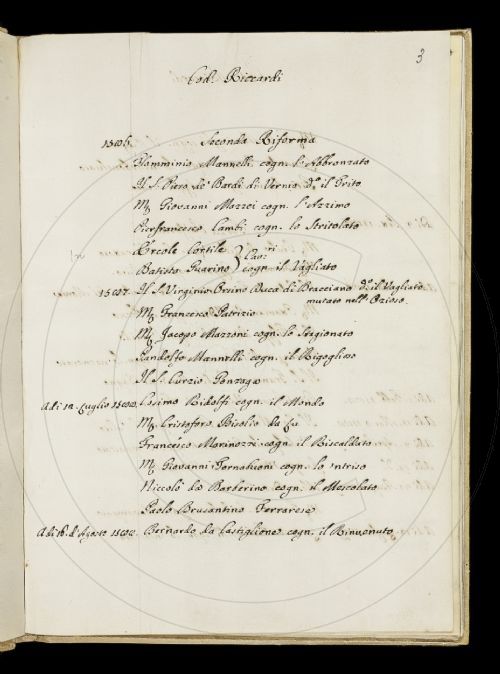 3
Cod. Riccardi
Seconda Riforma
Flamminio Mannelli cogn. l'Abbronzato
Il S. Piero de' Bardi di Vernio d.o il Trito
M. Giovanni Mazzei cogn. l'Azzimo
Pierfrancesco Cambi cogn. lo Stritolato
Ercole Cortile
Batista Guarino cogn. il Vagliato
Il S. Virginio Orsino Duca di Bracciano d.o il Vagliato
mutato nell' Ozioso
M. Francesco Patrizio
M. Jacopo Mazzoni cogn. lo Stagionato
Randolfo Mannelli cogn. il Rigoglioso
Il S. Curzio Gonzaga
A di 12. Luglio Cosimo Ridolfi cogn. il Mondo
M. Cristoforo da
Francesco Marinozzi cogn. il Riscaldato
M. Giovanni Tornabuoni cogn. lo Intriso
Niccolò da Barberino cogn. il Mescolato
Paolo Brusantino Ferrarese
A di d'Agosto Bernardo da Castiglione cogn. il Rinvenuto